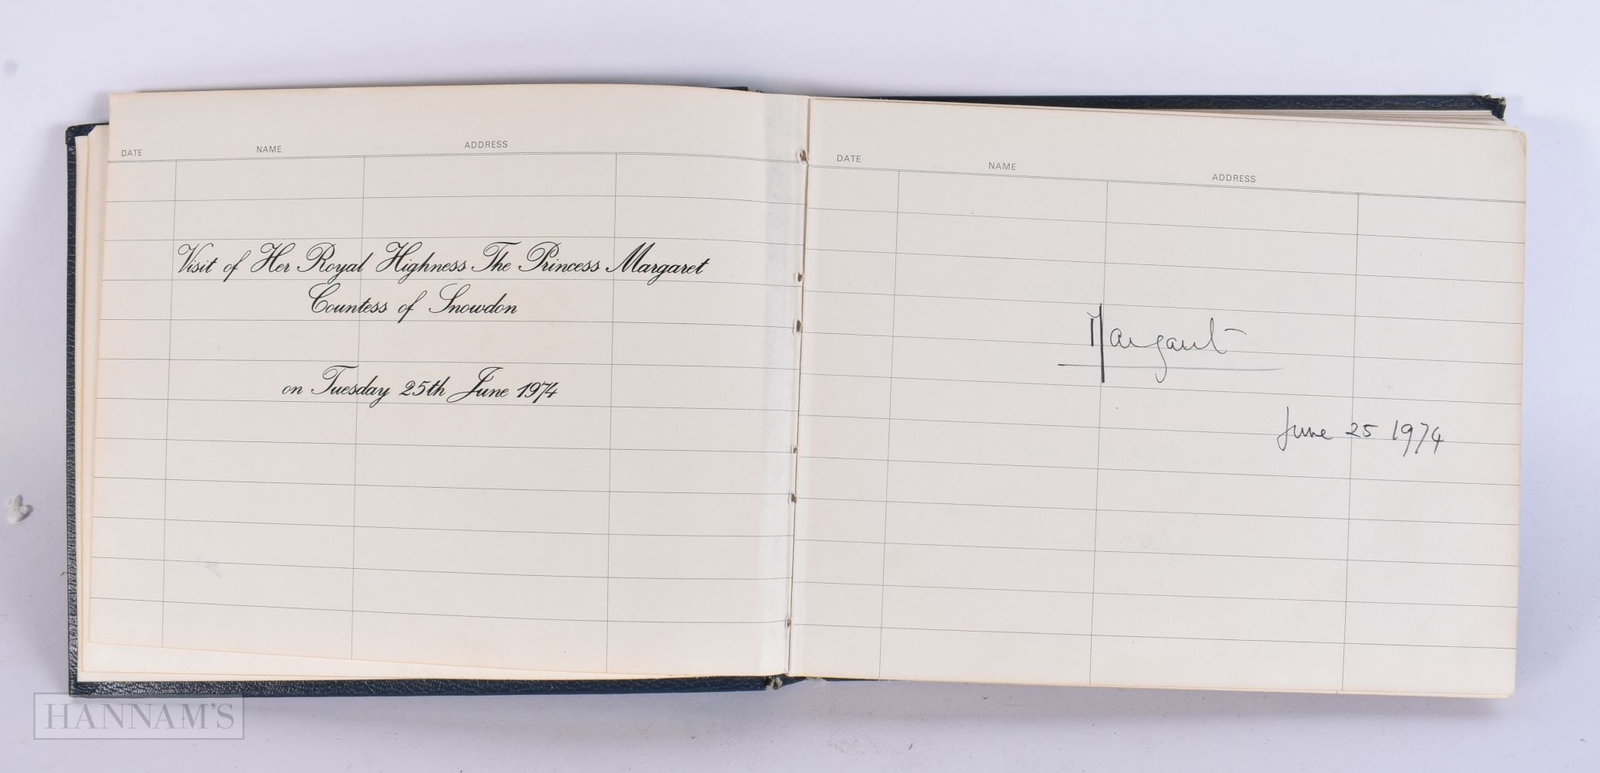 DATE NAME ADDRESS
Visit of Her Royal Highness The Princess Margaret
Countess of Snowdon
on Tuesday 25th June 1974
DATE NAME ADDRESS
Margaret
June 25 1974
HANNAM'S